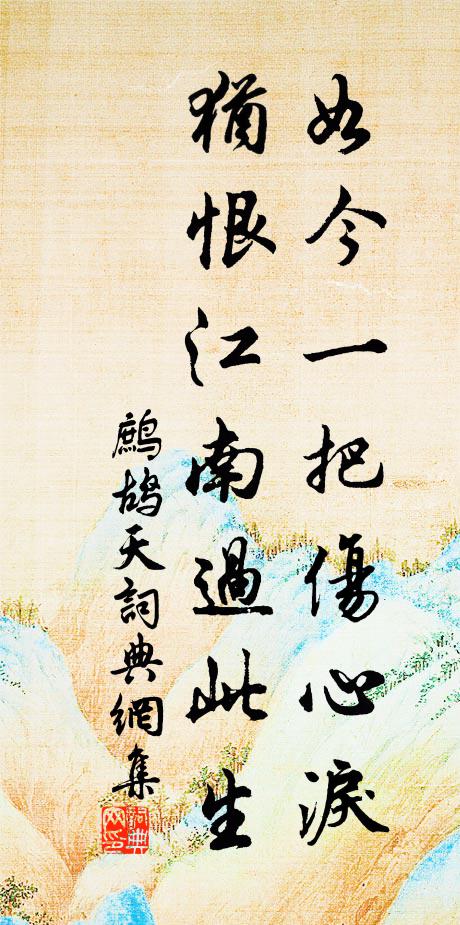 如今一把傷心淚
猶恨江南過此生
鷓鴣天詞典網集
詞典